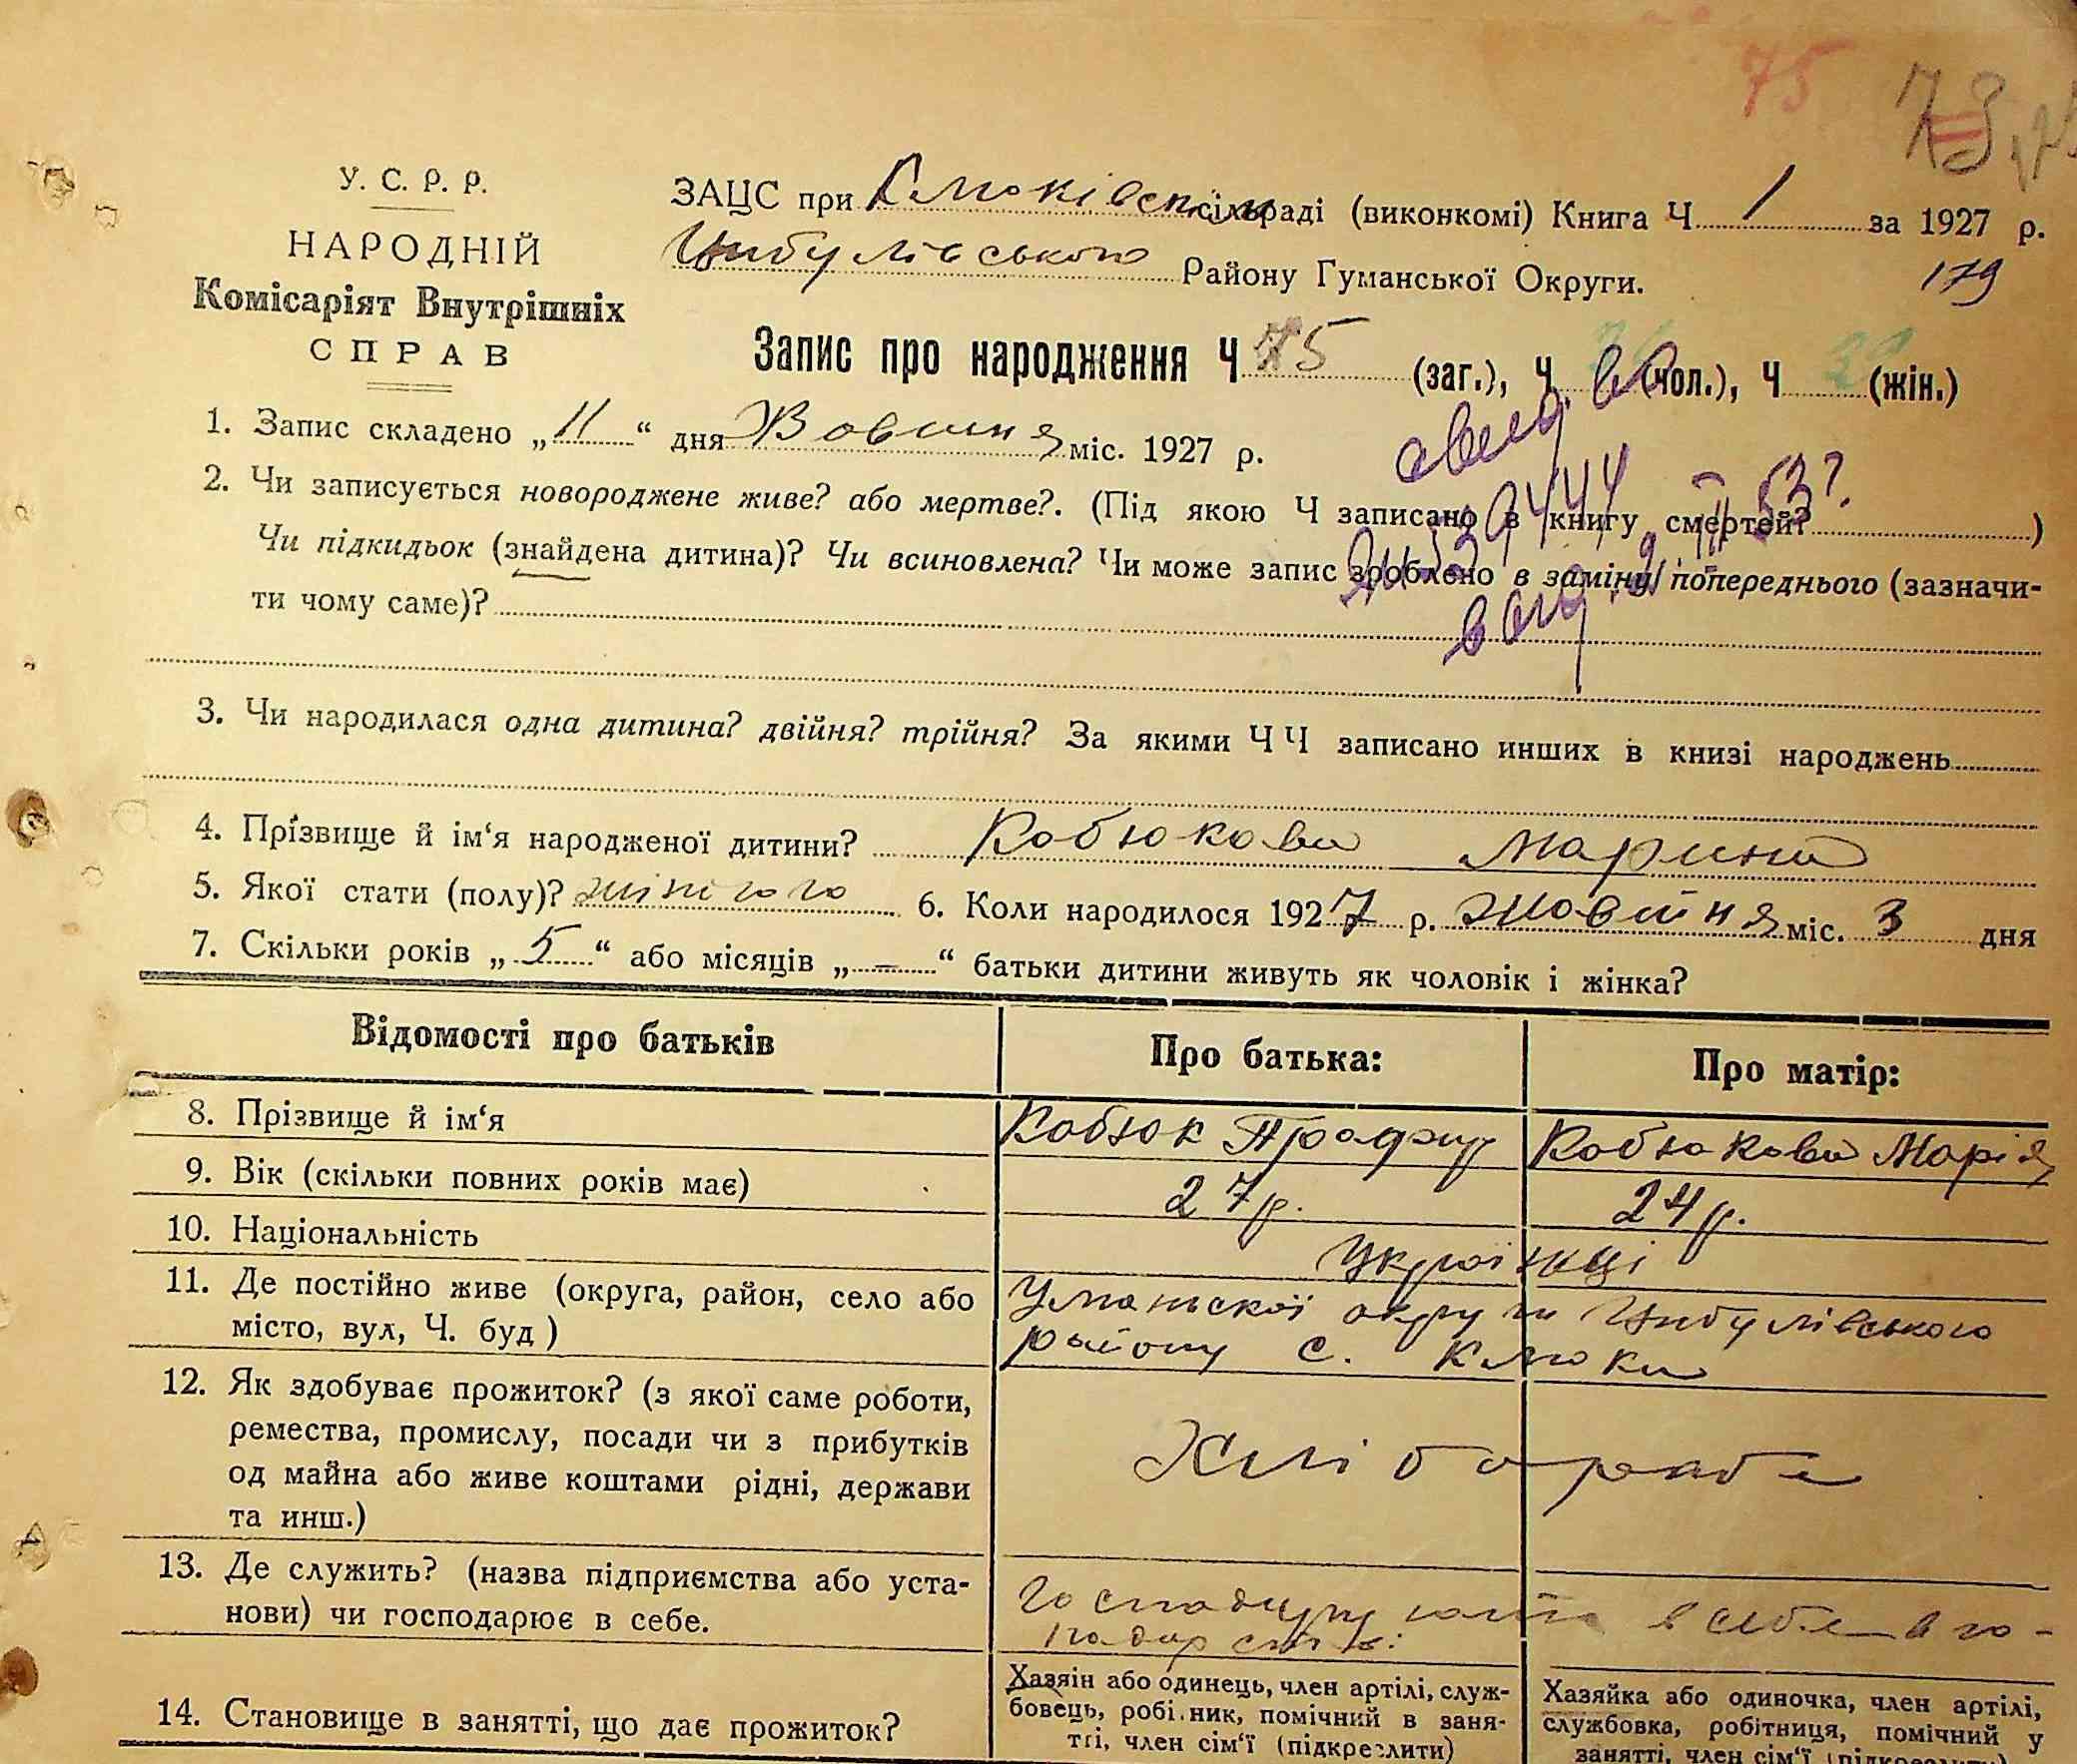 75 73
У. С. Р. Р.
НАРОДНІЙ
Комісаріят Внутрішніх
СПРАВ
ЗАЦС при сільраді (виконкомі) Книга Ч 1 за 1927 р.
Цибулівського Району Гуманської Округи. 179
Запис про народження Ч 75 (заг.), Ч (чол.), Ч (жін.)
1. Запис складено „11“ дня міс. 1927 р.
2. Чи записується новороджене живе? або мертве?. (Під якою Ч записано в книгу смертей? )
Чи підкидьок (знайдена дитина)? Чи всиновлена? Чи може запис зроблено в заміну попереднього (зазначи-
ти чому саме)?
3. Чи народилася одна дитина? двійня? трійня? За якими ЧЧ записано инших в книзі народжень
4. Прізвище й ім‘я народженої дитини? Кобзюкова Марина
5. Якої стати (полу)? жіного 6. Коли народилося 1927 р. Жовтня міс. 3 дня
7. Скільки років „5“ або місяців „–“ батьки дитини живуть як чоловік і жінка?
Відомості про батьків Про батька: Про матір:
8. Прізвище й ім‘я Кобзюк Кобзюкова Марія
9. Вік (скільки повних років має) 27 р. 24 р.
10. Національність Українці
11. Де постійно живе (округа, район, село або Уманської округи Цибулівського
місто, вул, Ч. буд ) району с. Клюки
12. Як здобуває прожиток? (з якої саме роботи,
ремества, промислу, посади чи з прибутків
од майна або живе коштами рідні, держави Хлібороби
та инш.)
13. Де служить? (назва підприємства або уста-
нови) чи господарює в себе.
14. Становище в занятті, що дає прожиток?
Хазяін або одинець, член артілі, служ-
бовець, робі.ник, помічний в заня-
тті, член сім‘ї (підкреслити)
Хазяйка або одиночка, член артілі,
службовка, робітниця, помічний у
занятті, член сім‘ї (підкреслити)